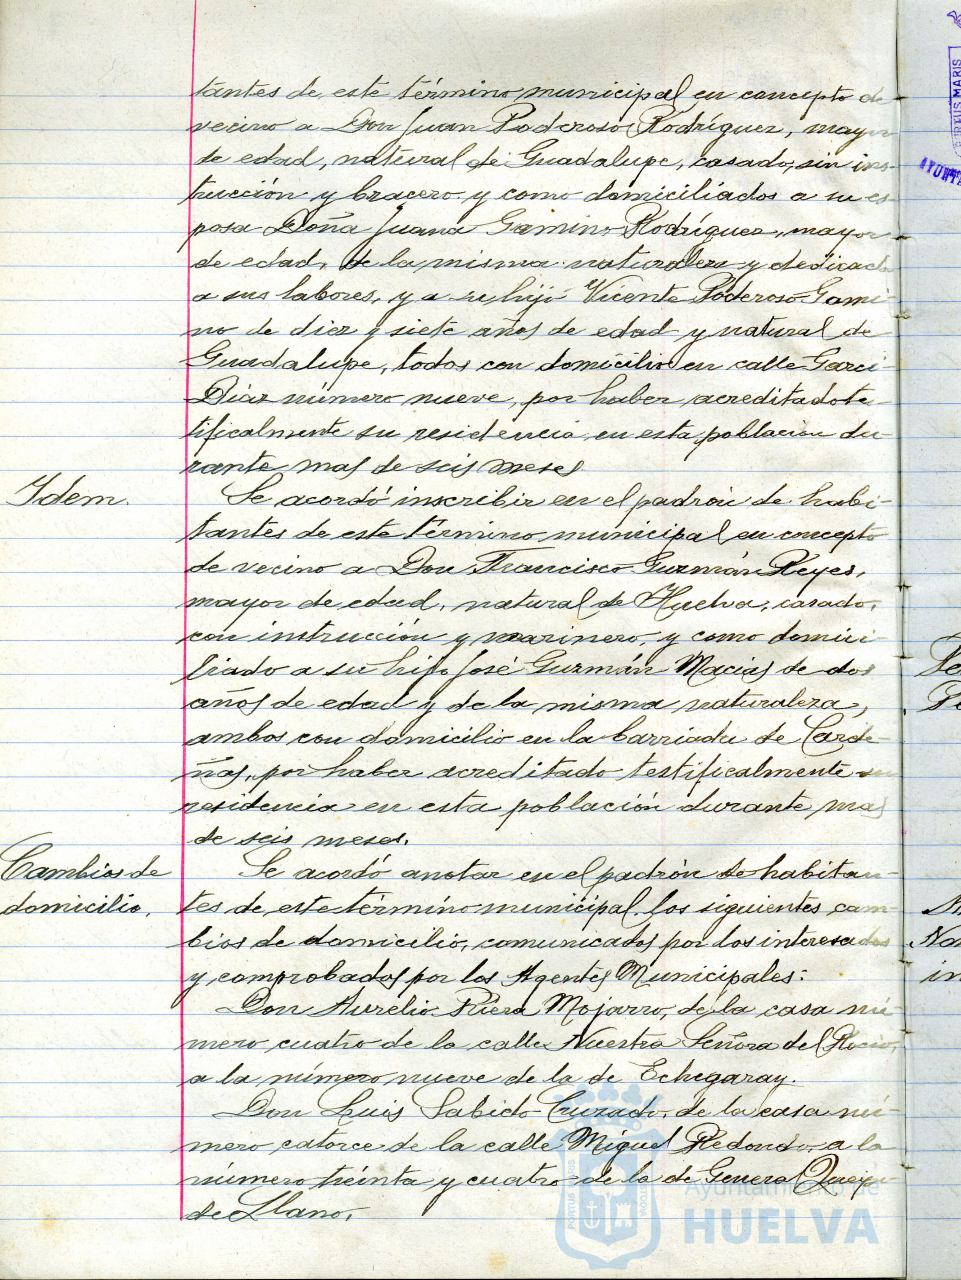 tantes de este término municipal en concepto de
vecino a Don Juan Poderoso Rodríguez, mayor
de edad, natural de Guadalupe, casado, sin ins-
trucción y bracero y como domiciliados a su es-
posa Doña Juana Gamino Rodríguez, mayor
de edad, de la misma naturaleza y dedicada
a sus labores, y a su hijo Vicente Poderoso Gami-
no de diez y siete años de edad y natural de
Guadalupe, todos con domicilio en calle Garci-
Díaz número nueve, por haber acreditado te-
tificalmente su residencia en esta población du-
rante mas de seis meses
Idem.
Se acordó inscribir en el padrón de habi-
tantes de este término municipal en concepto
de vecino a Don Francisco Guzmán Reyes,
mayor de edad, natural de Huelva, casado,
con instrucción y marinero, y como domici-
liado a su hijo José Guzmán Macías de dos
años de edad y de la misma naturaleza,
ambos con domicilio en la barriada de Carde-
ñas, por haber acreditado testificalmente su
residencia en esta población durante mas
de seis meses.
Cambios de
domicilio.
Se acordó anotar en el padrón de habitan-
tes de este término municipal los siguientes cam-
bios de domicilio, comunicados por los interesados
y comprobados por los Agentes Municipales:
Don Aurelio Riera Mojarro, de la casa nú-
mero cuatro de la calle Nuestra Señora del Rocío,
a la número nueve de la de Echegaray.
Don Luis Sabido Curado, de la casa nú-
mero catorce de la calle Miguel Redondo, a la
número treinta y cuatro de la de General Queipo
de Llano.
Ayuntamiento de
HUELVA